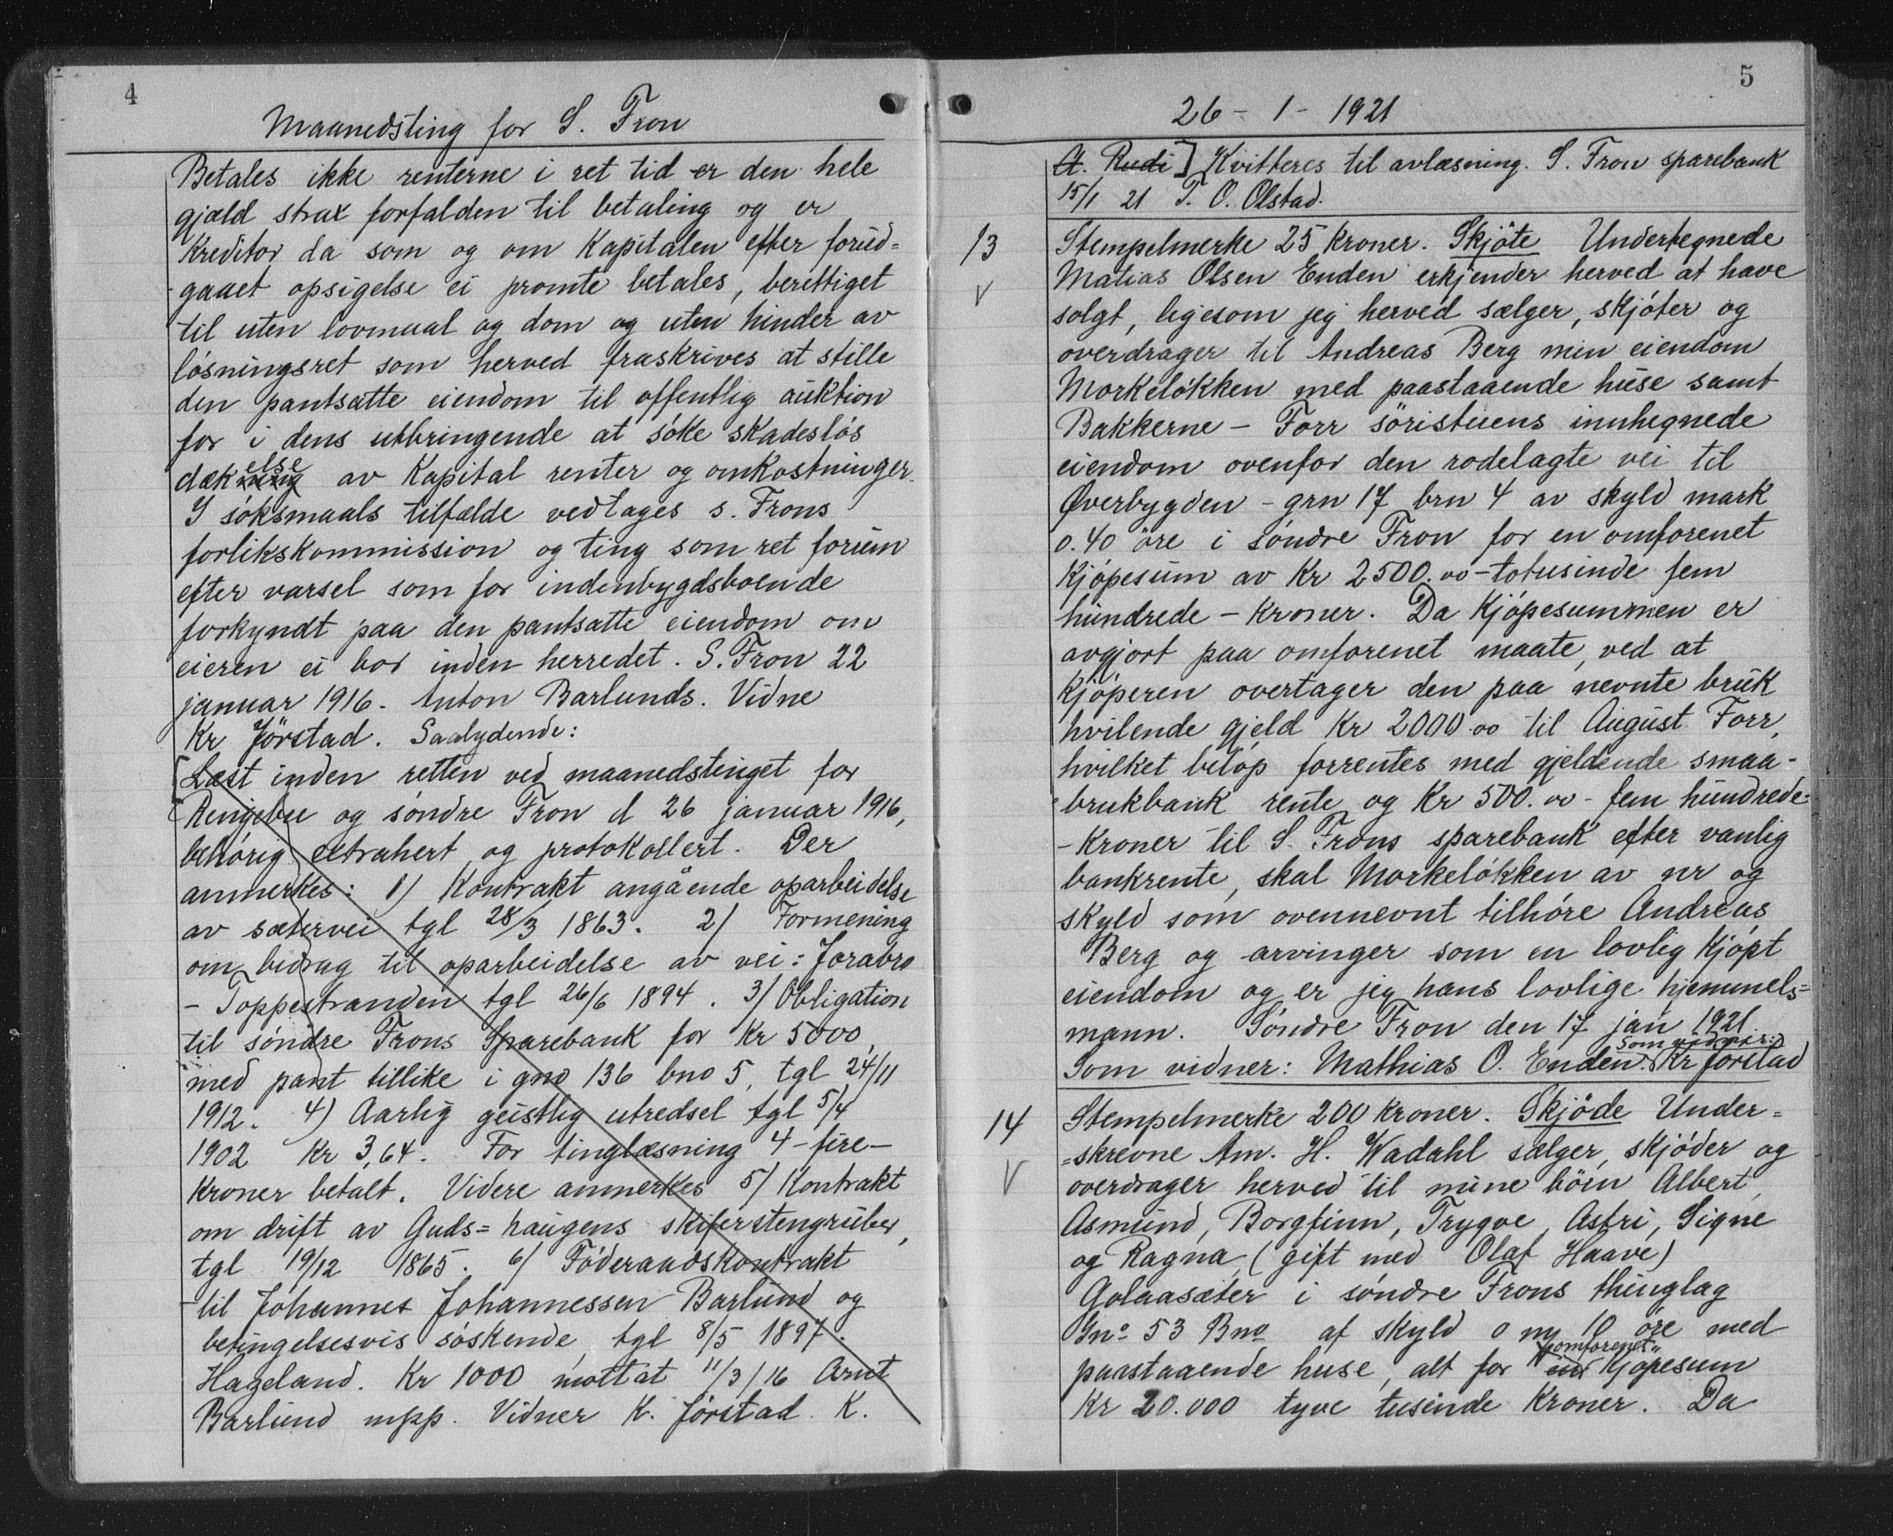 4
Maanedsting for S. Fron
Betales ikke renterne i ret tid er den hele
gjæld strax forfalden til betaling og er
kreditor da som og om Kapitalen efter forud=
gaaet opsigelse ei promte betales, berettiget
til uten lovmaal og dom og uten hinder av
løsningsret som herved fraskrives at stille
den pantsatte eiendom til offentlig auktion
for i dens utbringende at søke skadesløs
dækning else av Kapital renter og omkostninger.
I søksmaals tilfælde vedtages s. Frons
forlikskommission og ting som ret forum
efter varsel som for indenbygdsboende
forkyndt paa den pantsatte eiendom om
eieren ei bor inden herredet. S. Fron 22
januar 1916. Anton Barlunds. Vidne
Kr Jørstad. Saalydende:
[Læst inden retten ved maanedstinget for
Ringebu og søndre Fron d 26 januar 1916,
behørig extrahert og protokollert. Der
anmerkes: 1) Kontrakt angående oparbeidelse
av sætervei tgl 28/3 1863. 2) Formening
om bidrag til oparbeidelse av vei: Jorabro
- Toppestranden tgl 26/6 1894. 3) Obligation
til søndre Frons Sparebank for Kr 5000,
med pant tillike i gno 136 bno 5, tgl 24/11
1912. 4) Aarlig geistlig utredsel tgl 5/4
1902 Kr 3,64. For tinglæsning 4 - fire -
Kroner betalt. Videre anmerkes 5) Kontrakt
om drift av Guds= haugens skiferstengruber,
tgl 19/12 1865. 6) Føderaadskontrakt
til Johannes Johannessen Barlund og
betingelsesvis søskende, tgl 8/5 1897.
Hageland. Kr 1000 mottat 11/3/16 Arnt
Barlund mpp. Vidner K. Jørstad. K.
5
26 - 1 - 1921
A. Rudi] Kvitteres til avlæsning. S. Fron sparebank
15/1 21 T. O. Olstad.
13 Stempelmerke 25 kroner. Skjøte Undertegnede
V Matias Olsen Enden erkjender herved at have
solgt, ligesom jeg herved sælger, skjøter og
overdrager til Andreas Berg min eiendom
Morkeløkken med paastaaende huse samt
Bakkerne - Forr söristuens innhegnede
eiendom ovenfor den rodelagte vei til
Øverbygden - grn 17 brn 4 av skyld mark
0.40 øre i søndre Fron for en omforenet
kjøpesum av Kr 2500.00 - totusinde fem
hundrede - kroner. Da Kjøpesummen er
avgjort paa omforenet maate, ved at
Kjøperen overtager den paa nevnte bruk
hvilende gjeld Kr 2000.00 til August Forr,
hvilket beløp forrentes med gjeldende smaa-
brukbank rente og Kr 500.00 - fem hundrede=
- Kroner til S. Frons sparebank efter vanlig
bankrente, skal Morkeløkken av nr og
skyld som ovennevnt tilhøre Andreas
Berg og arvinger som en lovlig kjøpt
eiendom og er jeg hans lovlige hjemmels=
mann. Søndre Fron den 17 jan 1921.
Som vidner: Mathias O. Enden. Som vidner: Kr Jørstad
14 Stempelmerke 200 kroner. Skjøde Under=
V =skrevne Am. H. Wadahl sælger, skjøder og
overdrager herved til mine børn Albert,
Asmund, Borgfinn, Trygve, Astri, Signe
og Ragna (gift med Olaf Haave)
Golaasæter i søndre Frons thinglag
Gno 53 Bno af skyld 0 ny 10 øre med
paastaaende huse, alt for omforenet Kjøpesum
Kr 20.000 tyve tusinde Kroner. Da